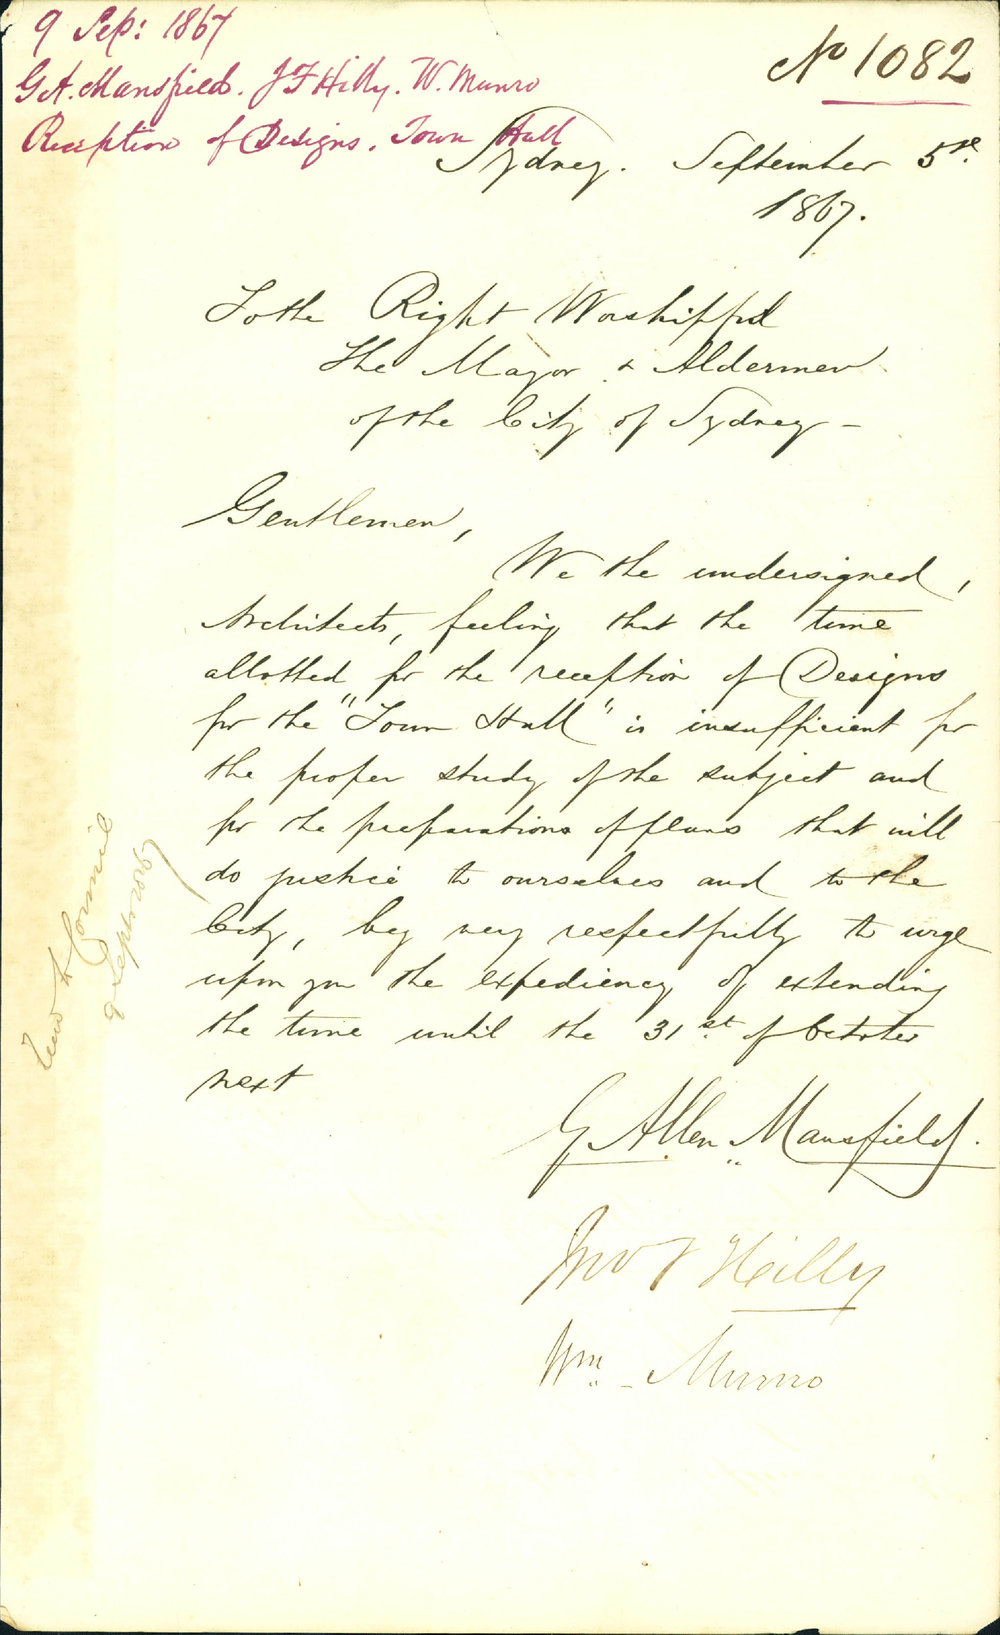 9 Sep: 1867
G A. Mansfield. J F Hilly. W. Munro
Reception of Designs. Town Hall
No 1082
Sydney. September 5th
1867.
To the Right Worshipful
The Mayor & Aldermen
of the City of Sydney –
Gentlemen,
We the undersigned,
Architects, feeling that the time
allotted for the reception of Designs
for the "Town Hall" is insufficient for
the proper study of the subject and
for the preparations of plans that will
do justice to ourselves and to the
City, beg very respectfully to urge
upon you the expediency of extending
the time until the 31st of October
next
G Allen Mansfield.
Jno F Hilly
Wm. Munro
9 Septr 1867